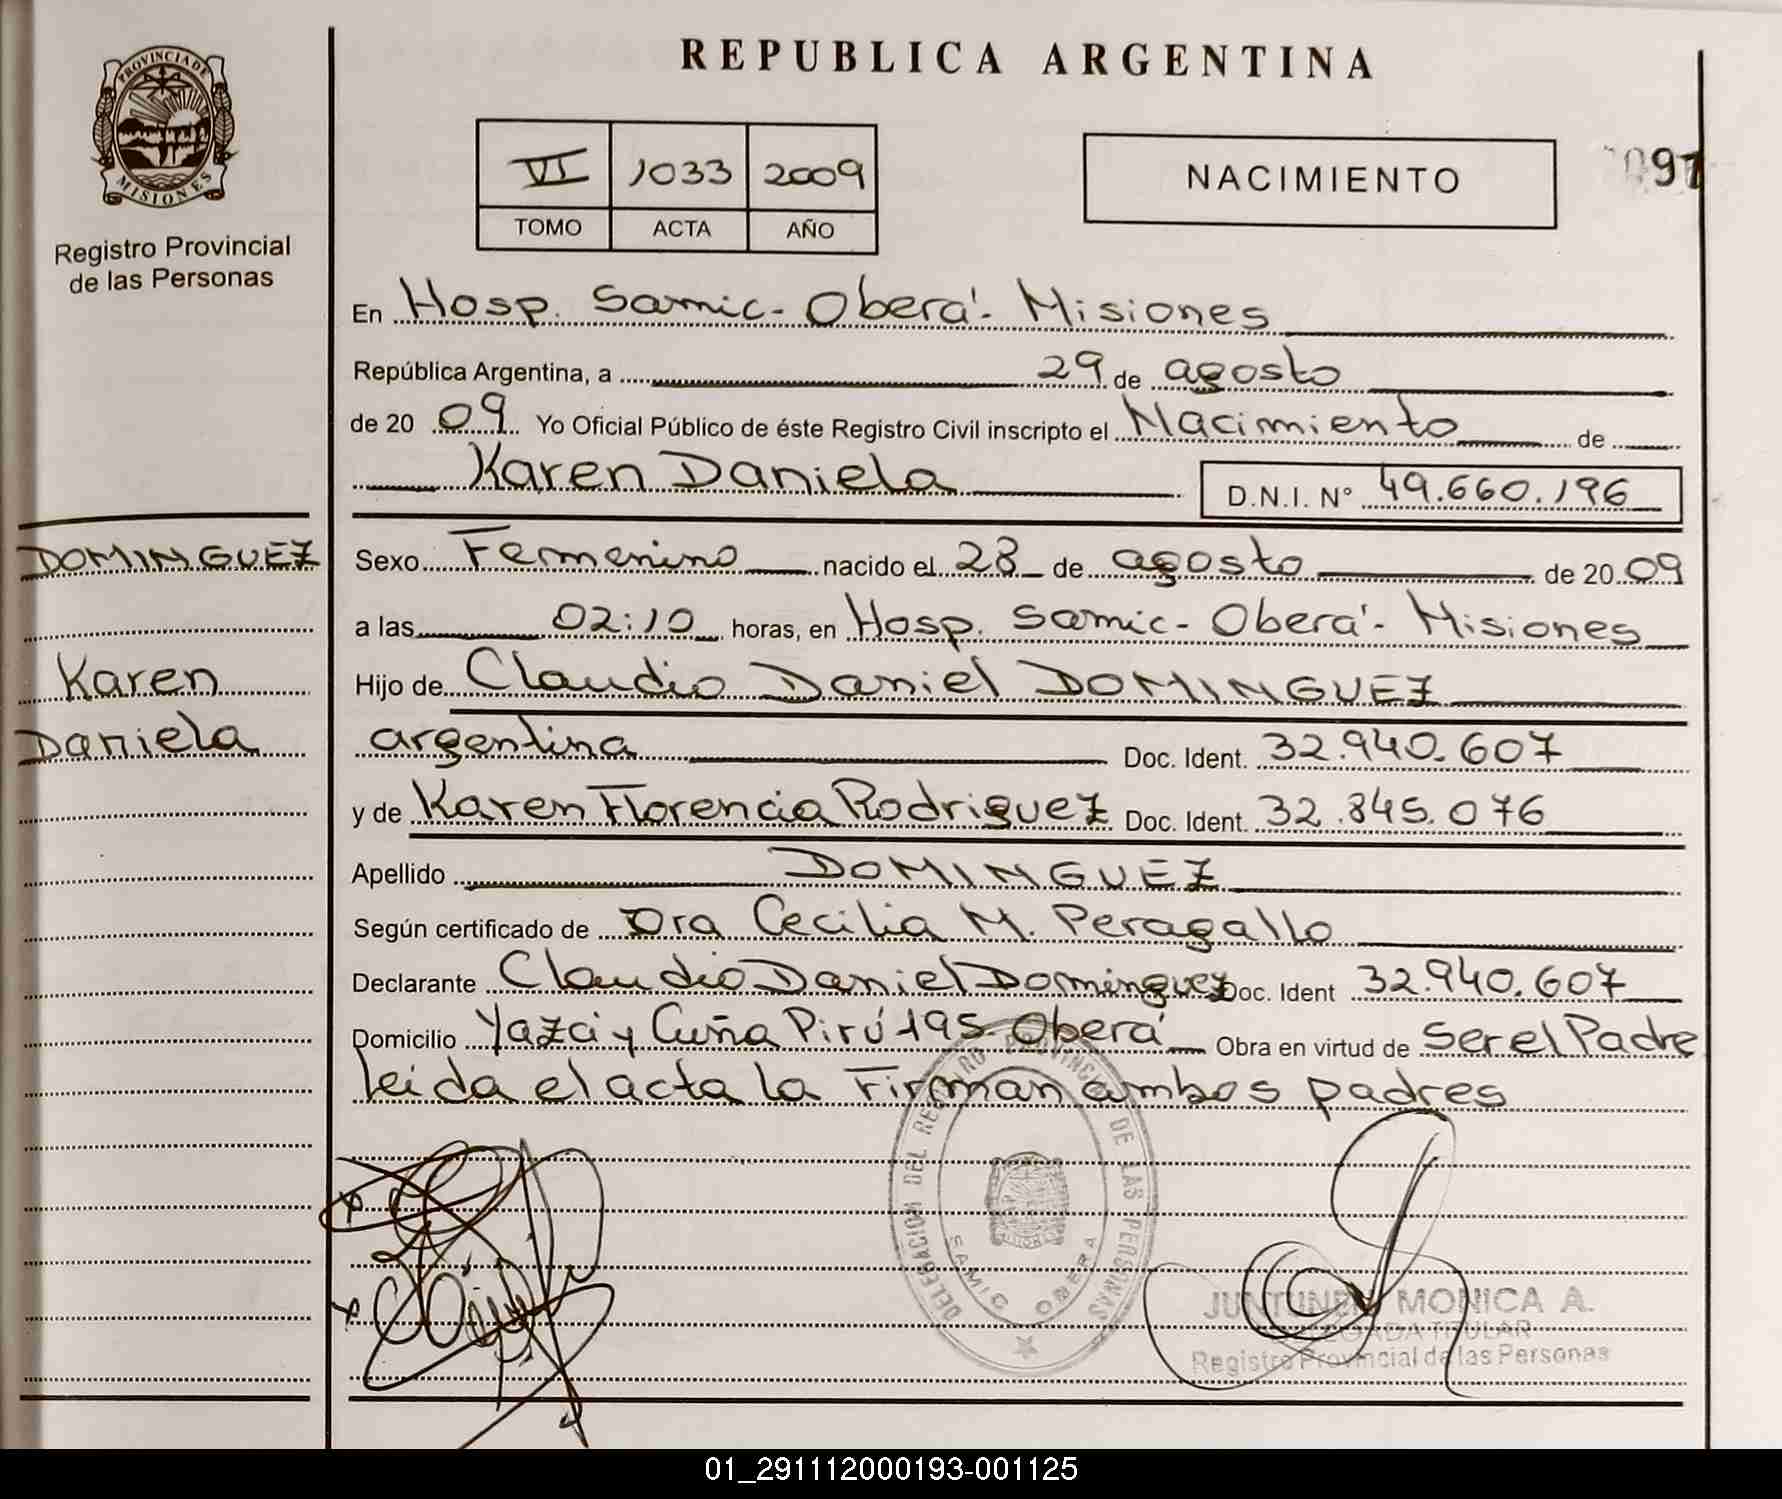 PROVINCIA DE
MISIONES
Registro Provincial
de las Personas
REPUBLICA ARGENTINA
VI 1033 2009
TOMO ACTA AÑO
NACIMIENTO
097
En Hosp. Samic - Oberá - Misiones
República Argentina, a 29 de agosto
de 20 09 Yo Oficial Público de éste Registro Civil inscripto el Nacimiento de
Karen Daniela D.N.I. Nº 49.660.196
DOMINGUEZ
Karen
Daniela
Sexo Femenino nacido el 28 de agosto de 20 09
a las 02:10 horas, en Hosp. Samic - Oberá - Misiones
Hijo de Claudio Daniel DOMINGUEZ
argentina Doc. Ident. 32.940.607
y de Karen Florencia Rodriguez Doc. Ident. 32.845.076
Apellido DOMINGUEZ
Según certificado de Dra Cecilia M. Peragallo
Declarante Claudio Daniel Dominguez Doc. Ident 32.940.607
Domicilio Yazá y Cuña Pirú 195 Oberá Obra en virtud de Ser el Padre
leida el acta la Firman ambos padres
DELEGACION DEL REGISTRO PROVINCIAL DE LAS PERSONAS
SAMIC OBERA
JUNTUNEN MONICA A.
DELEGADA TITULAR
Registro Provincial de las Personas
01_291112000193-001125